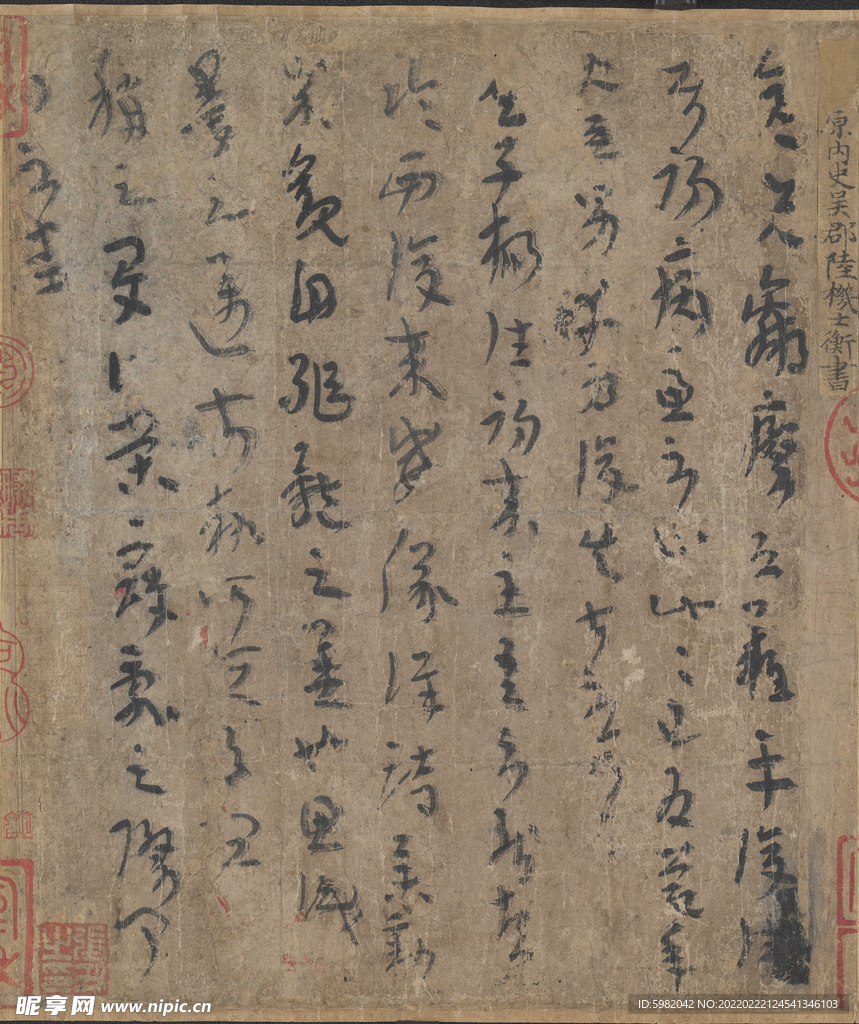 原内史吳郡陸機士衡書
彥先羸瘵恐難平復往
屬初病慮不止此此已為慶承
使唯男幸為復失前憂耳
吳子楊往初來主吾不能盡
臨西復來威儀詳跱舉動
成觀自軀體之美也思識
量之邁前執所恒有宜
稱之夏伯榮寇亂之際聞
問不悉
昵享网 www.nipic.cn
ID:5982042 NO:20220222124541346103